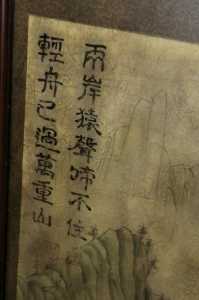 兩岸猿聲啼不住
輕舟已過萬重山